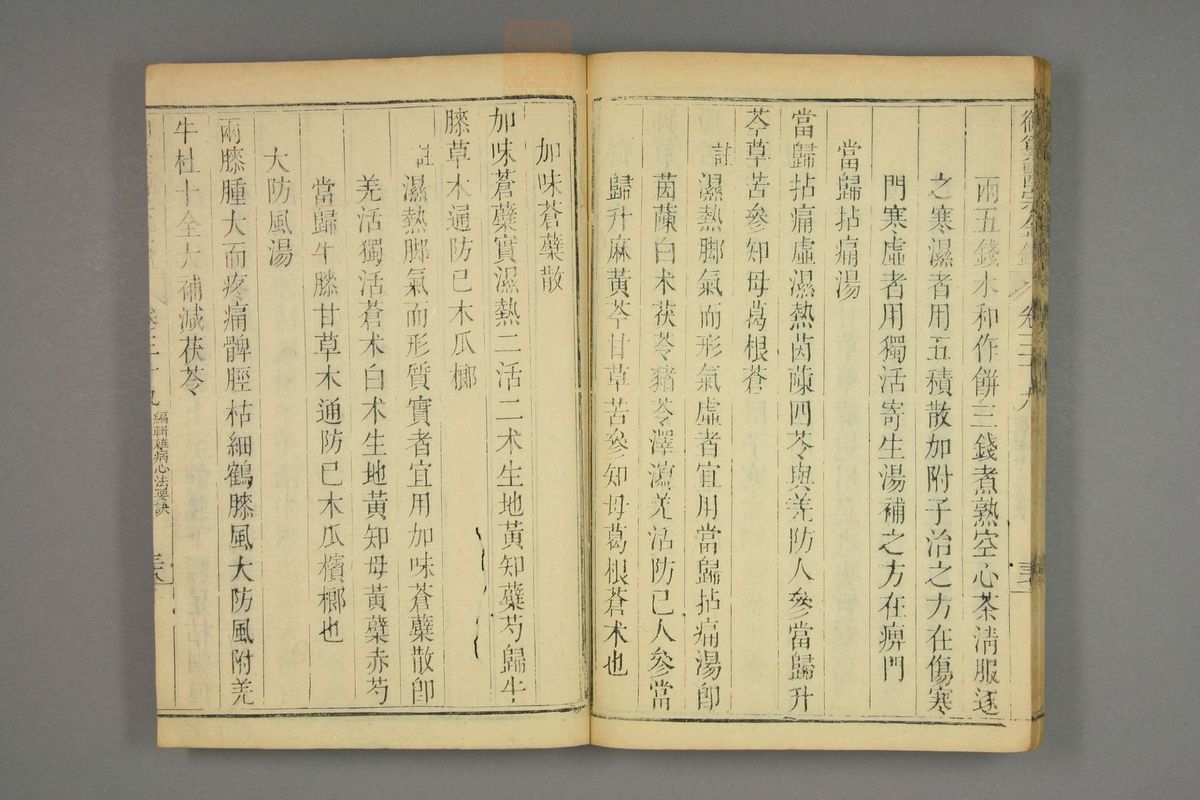 兩五錢水和作餅三錢煮熟空心茶淸服逐
之寒濕者用五積散加附子治之方在傷寒
門寒虛者用獨活寄生湯補之方在痹門
當歸拈痛湯
當歸拈痛虛濕熱茵蔯四苓與羌防人參當歸升
芩草苦參知母葛根蒼
註濕熱脚氣而形氣虛者宜用當歸拈痛湯卽
茵蔯白朮茯苓豬苓澤瀉羌活防己人參當
歸升麻黃芩甘草苦參知母葛根蒼朮也
加味蒼蘗散
加味蒼蘗實濕熱二活二朮生地黃知蘗芍歸牛
膝草木通防已木瓜榔
註濕熱脚氣而形質實者宜用加味蒼蘗散卽
羌活獨活蒼朮白朮生地黃知母黃蘗赤芍
當歸牛膝甘草木通防已木瓜檳榔也
大防風湯
兩膝腫大而疼痛髀脛枯細鶴膝風大防風附羌
牛杜十全大補減茯苓
編輯雜病心法要訣